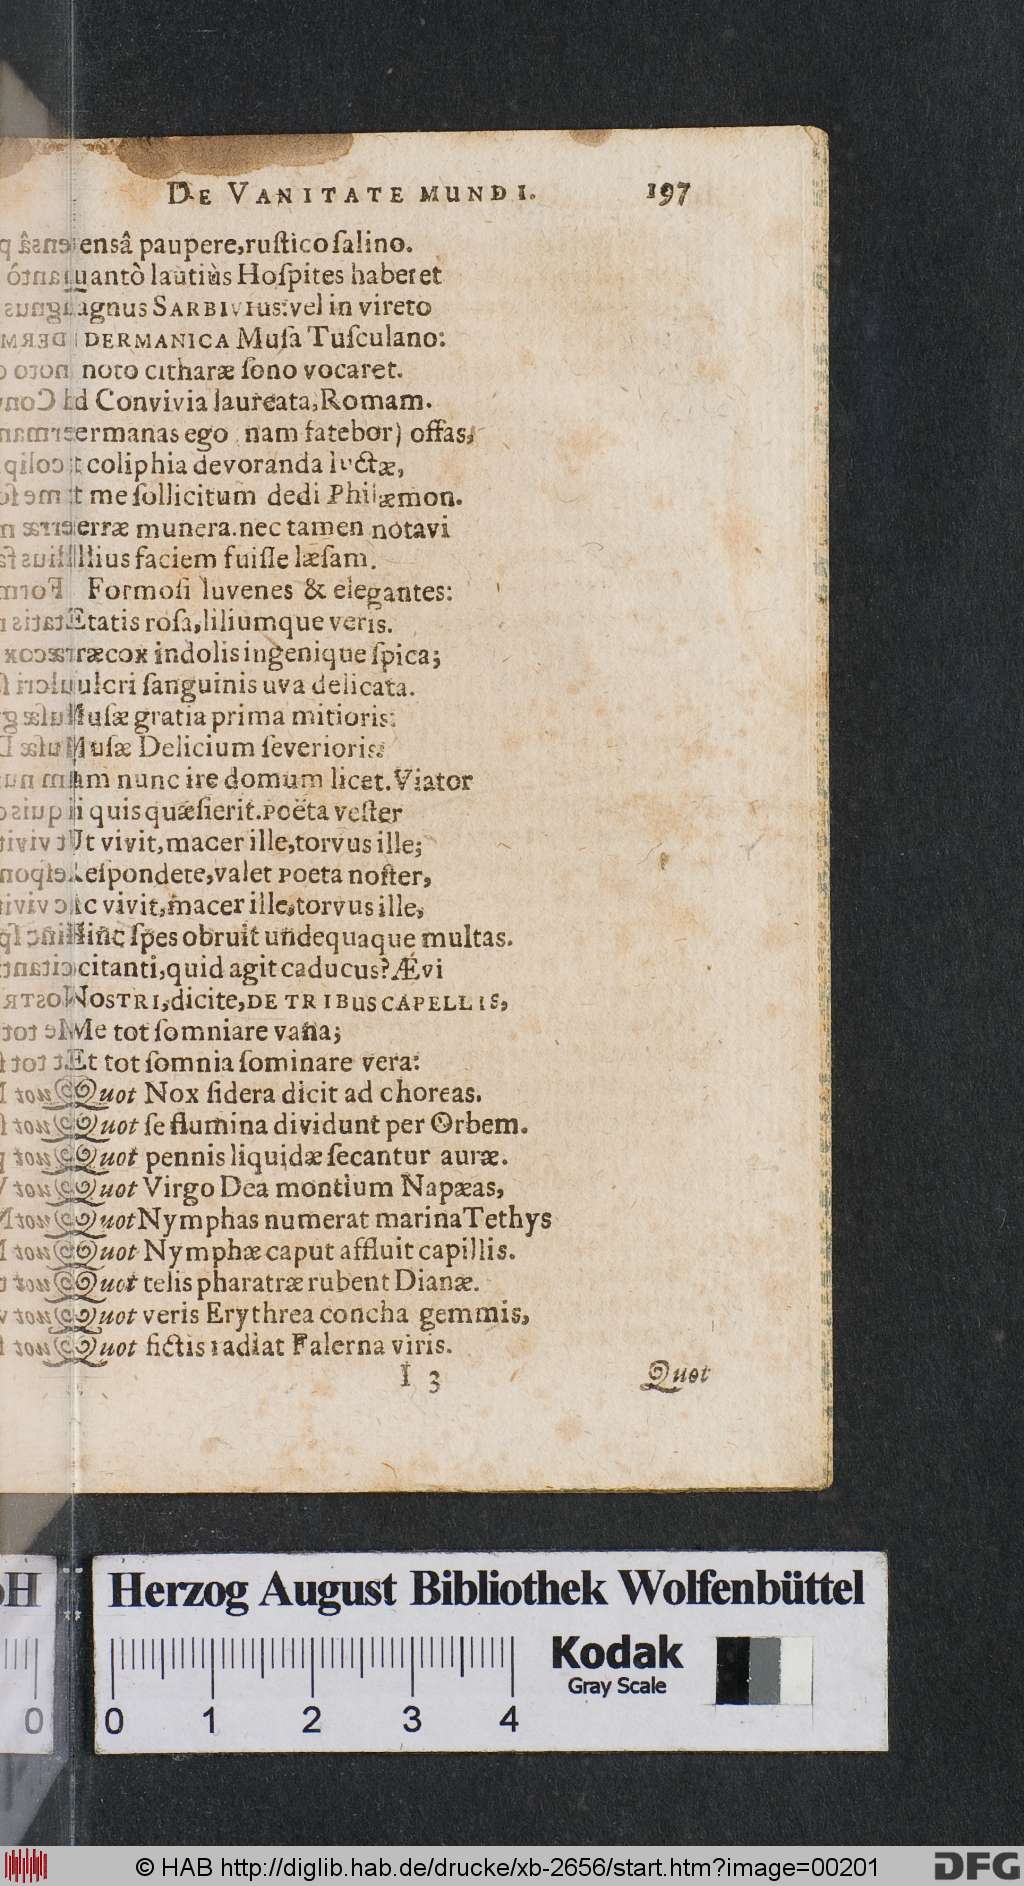 DE VANITATE MUNDI. 197
ensâ paupere, rustico salino.
uantò lautiùs Hospites haberet
agnus SARBIVIus: vel in vireto
DERMANICA Musa Tusculano:
noto citharæ sono vocaret.
d Convivia laureata, Romam.
ermanas ego nam fatebor) offas,
t coliphia devoranda luctæ,
t me sollicitum dedi Philæmon.
erræ munera. nec tamen notavi
llius faciem fuisse læsam.
Formosi Iuvenes & elegantes:
Ætatis rosa, liliumque veris.
ræcox indolis ingenique spica;
ulcri sanguinis uva delicata.
Musæ gratia prima mitioris:
Musæ Delicium severioris:
am nunc ire domum licet. Viator
i quis quæsierit. Poëta vester
Ut vivit, macer ille, torvus ille;
Respondete, valet Poeta noster,
ic vivit, macer ille, torvus ille,
Hinc spes obruit undequaque multas.
citanti, quid agit caducus? Ævi
NOSTRI, dicite, DE TRIBus CAPELLIS,
Me tot somniare vana;
Et tot somnia sominare vera:
Quot Nox sidera dicit ad choreas.
Quot se flumina dividunt per Orbem.
Quot pennis liquidæ secantur auræ.
Quot Virgo Dea montium Napæas,
Quot Nymphas numerat marina Tethys
Quot Nymphæ caput affluit capillis.
Quot telis pharatræ rubent Dianæ.
Quot veris Erythrea concha gemmis,
Quot fictis radiat Falerna viris.
I 3 Quot
Herzog August Bibliothek Wolfenbüttel
Kodak
Gray Scale
0 0 1 2 3 4
© HAB http://diglib.hab.de/drucke/xb-2656/start.htm?image=00201
DFG